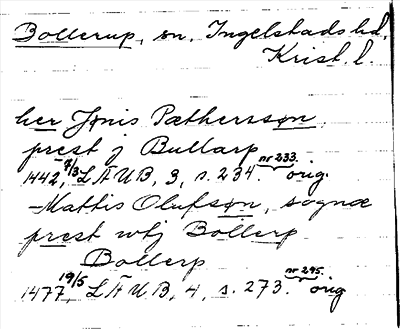 Bollerup, sn, Ingelstads hd,
Krist. l.
her Jønis Pæthersson
prest j Bullarp
1442 7/3, LÄUB, 3, s. 234. nr 233. orig.
Mattis Olufsøn, sognæ
prest wtj Bollerp
Bollerp
1477 19/5, LÄUB, 4, s. 273. nr 295. orig